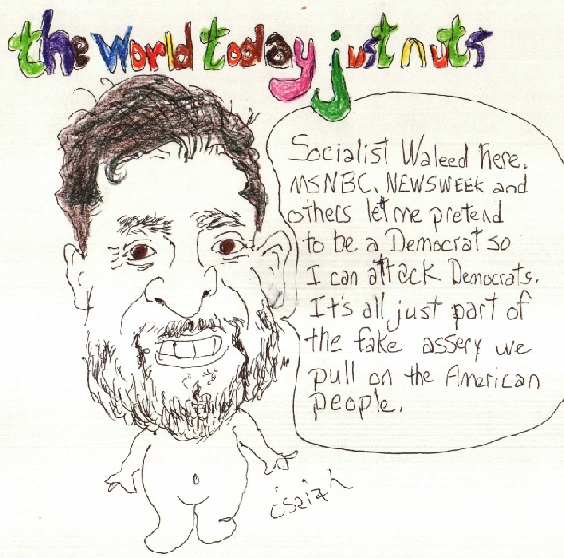 the World today just nuts
Socialist Waleed here.
MSNBC, NEWSWEEK and
others let me pretend
to be a Democrat so
I can attack Democrats.
It's all just part of
the fake assery we
pull on the American
people.